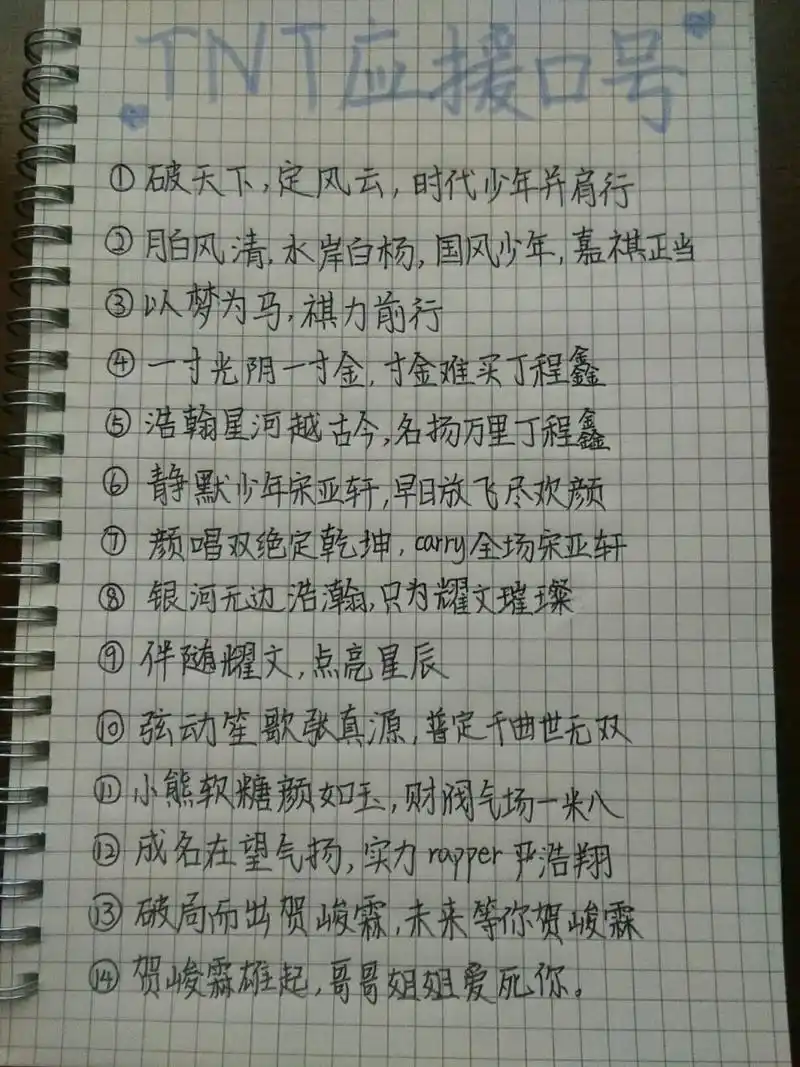 TNT应援口号
①破天下,定风云,时代少年并肩行
②月白风清,水岸白杨,国风少年,嘉祺正当
③以梦为马,祺力前行
④一寸光阴一寸金,寸金难买丁程鑫
⑤浩翰星河越古今,名扬万里丁程鑫
⑥静默少年宋亚轩,早日放飞尽欢颜
⑦颜唱双绝定乾坤,carry全场宋亚轩
⑧银河无边浩瀚,只为耀文璀璨
⑨伴随耀文,点亮星辰
⑩弦动笙歌张真源,普定千曲世无双
⑪小熊软糖颜如玉,财阀气场一米八
⑫成名在望气扬,实力rapper严浩翔
⑬破局而出贺峻霖,未来等你贺峻霖
⑭贺峻霖雄起,哥哥姐姐爱死你。